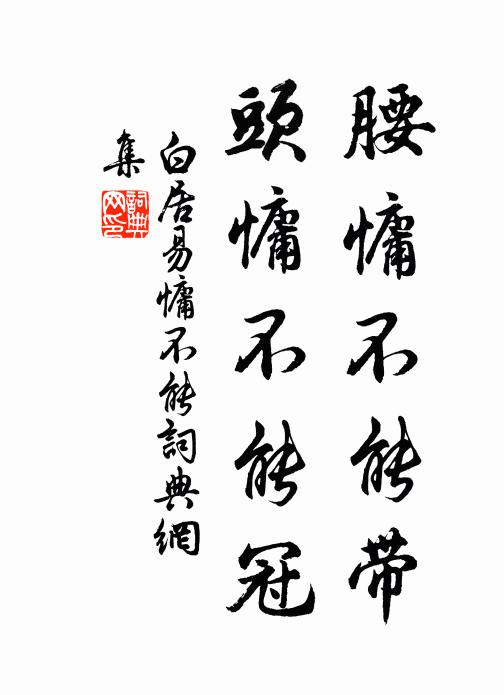 腰慵不能帶
頭慵不能冠
白居易慵不能詞典網
集
詞典網印